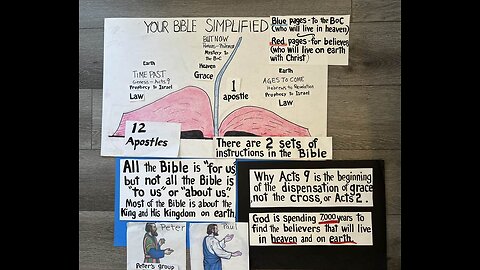 YOUR BIBLE SIMPLIFIED
Blue pages - to the BoC
(who will live in heaven)
Red pages - for believers
(who will live on earth
with Christ)
BUT NOW
Romans - Philemon
Mystery to the
BoC
Heaven
Grace
Earth
TIME PAST
Genesis - Acts 9
Prophecy to Israel
Law
1
apostle
Earth
AGES TO COME
Hebrews to Revelation
Prophecy to Israel
Law
12
Apostles
There are 2 sets of
instructions in the Bible
All the Bible is "for us"
but not all the Bible is
"to us" or "about us."
Most of the Bible is about the
King and His Kingdom on earth.
Why Acts 9 is the beginning
of the dispensation of grace
,not the cross, or Acts 2.
God is spending 7,000 years to
find the believers that will live
in heaven and on earth.
Peter
Paul
Peter's group